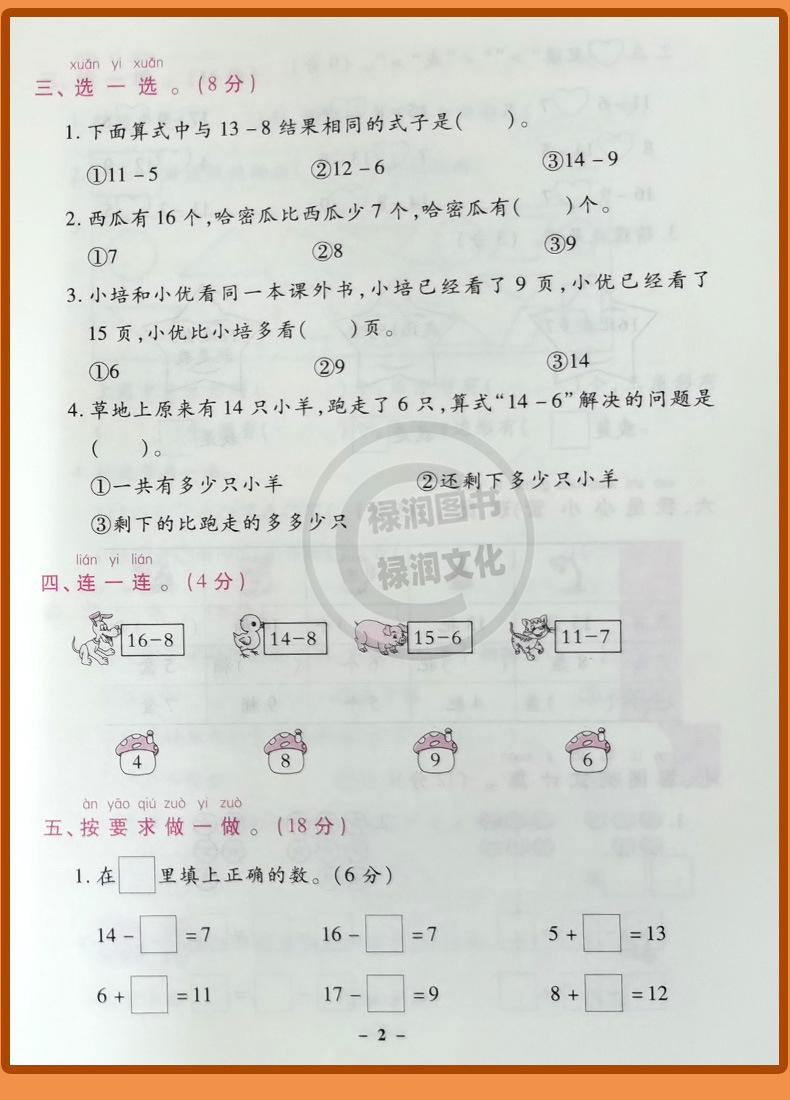 xuǎn yi xuǎn
三、选一选。(8分)
1. 下面算式中与 13-8 结果相同的式子是(  )。
①11-5 ②12-6 ③14-9
2. 西瓜有 16 个,哈密瓜比西瓜少 7 个,哈密瓜有(  )个。
①7 ②8 ③9
3. 小培和小优看同一本课外书,小培已经看了 9 页,小优已经看了
15 页,小优比小培多看(  )页。
①6 ②9 ③14
4. 草地上原来有 14 只小羊,跑走了 6 只,算式“14-6”解决的问题是
(  )。
①一共有多少只小羊 ②还剩下多少只小羊
③剩下的比跑走的多多少只
禄润图书
禄润文化
lián yi lián
四、连一连。(4分)
16-8 14-8 15-6 11-7
4 8 9 6
àn yāo qiú zuò yi zuò
五、按要求做一做。(18分)
1. 在□里填上正确的数。(6分)
14-□=7 16-□=7 5+□=13
6+□=11 17-□=9 8+□=12
- 2 -